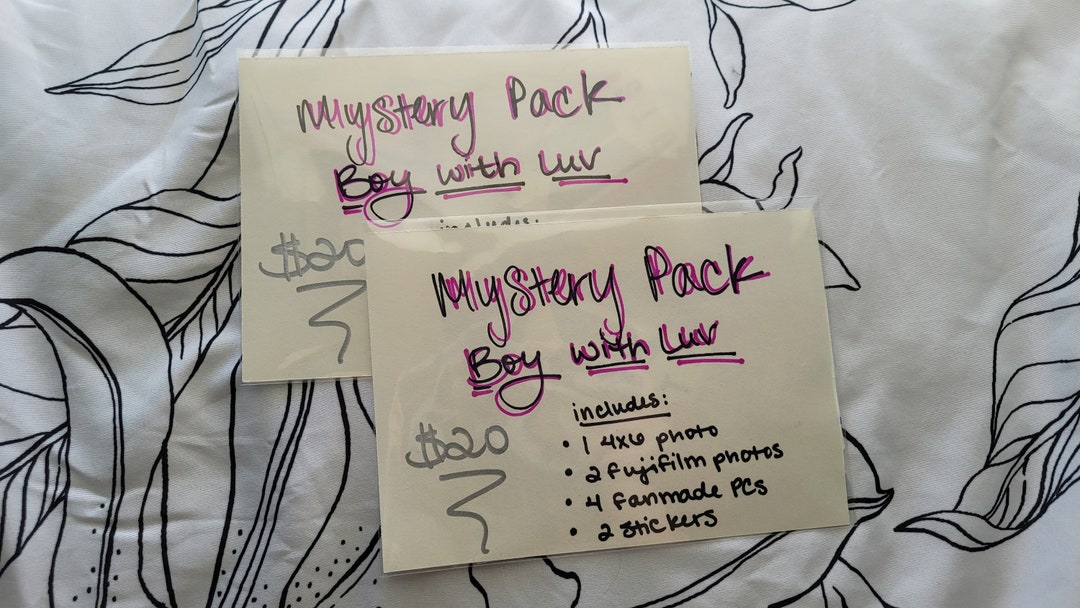 Mystery Pack
Boy with Luv
includes:
$20
Mystery Pack
Boy with Luv
includes:
• 1 4x6 photo
• 2 Fujifilm photos
• 4 Fanmade PCs
• 2 stickers
$20